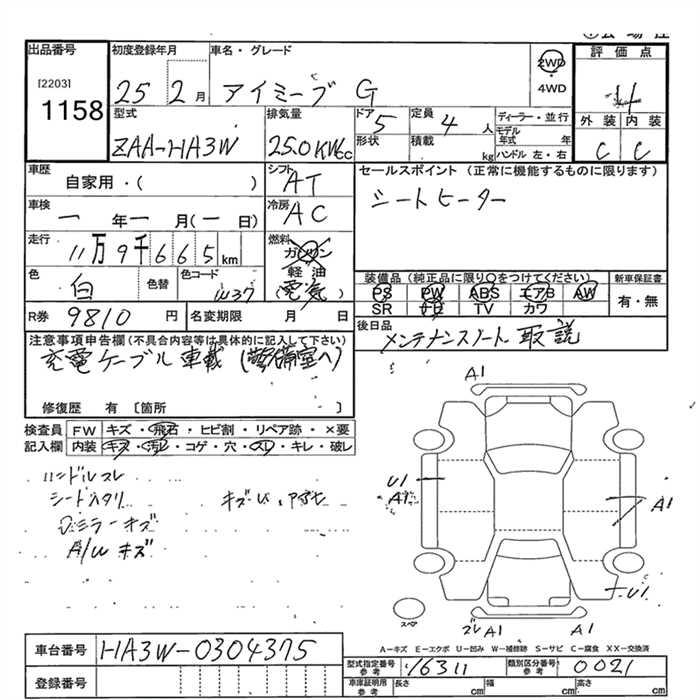 出品番号
[2203]
1158
初度登録年月
25 2月
車名・グレード
アイミーブ G
2WD
・
4WD
評価点
4
外装 内装
C C
型式
ZAA-HA3W
排気量
25.0KW cc
ドア 5
形状
定員 4 人
積載 kg
ディーラー・並行
モデル年式 年
ハンドル 左・右
車歴
自家用・( )
シフト
AT
セールスポイント (正常に機能するものに限ります)
シートヒーター
車検
一年一月(一日)
冷房
AC
走行
11万9千665km
燃料
ガソリン
軽油
(電気)
色
白
色替
色コード
W37
装備品(純正品に限り〇をつけてください)
PS PW ABS エアB AW
SR ナビ TV カワ
新車保証書
有・無
R券 9810 円
名変期限 月 日
後日品
メンテナンスノート 取説
注意事項申告欄(不具合内容等は具体的に記入して下さい)
充電ケーブル車載(警備室へ)
修復歴 有 〔箇所 〕
検査員
記入欄
FW キズ・飛石・ヒビ割・リペア跡・×要
内装 キズ・汚レ・コゲ・穴・スレ・キレ・破レ
ハンドルスレ
シートヘタリ
キズU
ミラーキズ
A/W キズ
A1
U1
A1
A1
U1
スペア
A1 A1
A-キズ E-エクボ U-凹み W-補修跡 S-サビ C-腐食 XX-交換済
車台番号
HA3W-0304375
登録番号
型式指定番号
参考
16311
類別区分番号
参考
0021
車庫証明用
参考
長さ cm
幅 cm
高さ cm